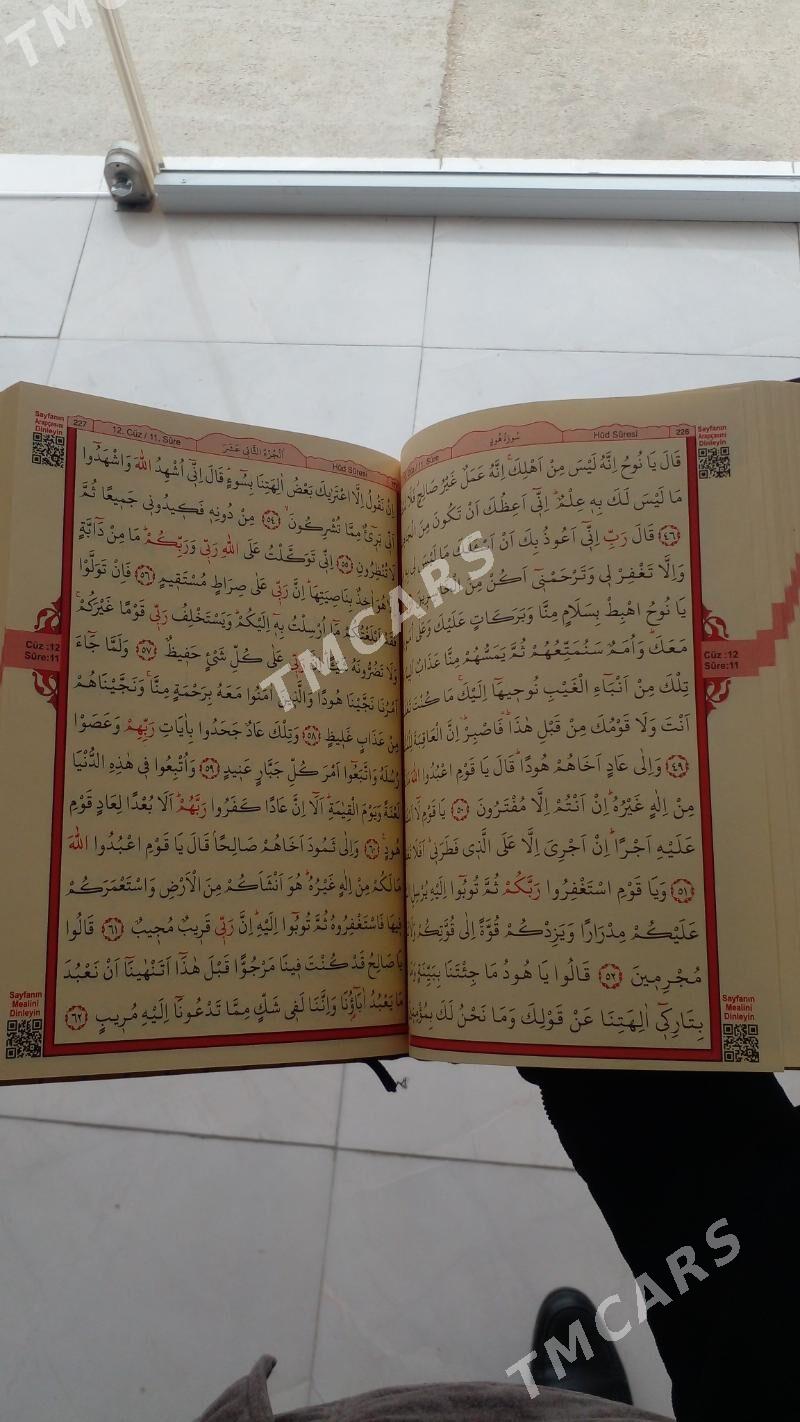 TMCARS
Sayfanın
Arapçasını
Dinleyin
Hûd Sûresi
سُورَةُ هُودٍ
226
قَالَ يَا نُوحُ اِنَّهُ لَيْسَ مِنْ اَهْلِكَ اِنَّهُ عَمَلٌ غَيْرُ صَالِحٍ
مَا لَيْسَ لَكَ بِه۪ عِلْمٌ اِنّ۪ٓي اَعِظُكَ اَنْ تَكُونَ مِنَ
٤٦ قَالَ رَبِّ اِنّ۪ٓي اَعُوذُ بِكَ اَنْ
وَاِلَّا تَغْفِرْ ل۪ي وَتَرْحَمْن۪ٓي اَكُنْ مِنَ
يَا نُوحُ اهْبِطْ بِسَلَامٍ مِنَّا وَبَرَكَاتٍ عَلَيْكَ وَعَلٰٓى
مَعَكَ وَاُمَمٌ سَنُمَتِّعُهُمْ ثُمَّ يَمَسُّهُمْ مِنَّا عَذَابٌ
تِلْكَ مِنْ اَنْبَٓاءِ الْغَيْبِ نُوح۪يهَٓا اِلَيْكَ مَا كُنْتَ
اَنْتَ وَلَا قَوْمُكَ مِنْ قَبْلِ هٰذَا فَاصْبِرْ اِنَّ الْعَاقِبَةَ
٤٩ وَاِلٰى عَادٍ اَخَاهُمْ هُودًا قَالَ يَا قَوْمِ اعْبُدُوا
مِنْ اِلٰهٍ غَيْرُهُ اِنْ اَنْتُمْ اِلَّا مُفْتَرُونَ ٥٠ يَا قَوْمِ
عَلَيْهِ اَجْرًا اِنْ اَجْرِيَ اِلَّا عَلَى الَّذ۪ي فَطَرَن۪ي
٥١ وَيَا قَوْمِ اسْتَغْفِرُوا رَبَّكُمْ ثُمَّ تُوبُٓوا اِلَيْهِ يُرْسِلِ
عَلَيْكُمْ مِدْرَارًا وَيَزِدْكُمْ قُوَّةً اِلٰى قُوَّتِكُمْ
مُجْرِم۪ينَ ٥٢ قَالُوا يَا هُودُ مَا جِئْتَنَا بِبَيِّنَةٍ
بِتَارِك۪ٓي اٰلِهَتِنَا عَنْ قَوْلِكَ وَمَا نَحْنُ لَكَ بِمُؤْمِن۪ينَ
Cüz :12
Sûre:11
Sayfanın
Mealini
Dinleyin
Sayfanın
Arapçasını
Dinleyin
227
12. Cüz / 11. Sûre
اَلْجُزْءُ الثَّانِي عَشَرَ
Hûd Sûresi
اِنْ نَقُولُ اِلَّا اعْتَرٰيكَ بَعْضُ اٰلِهَتِنَا بِسُٓوءٍ قَالَ اِنّ۪ٓي اُشْهِدُ اللّٰهَ وَاشْهَدُٓوا
اَنّ۪ي بَر۪ٓيءٌ مِمَّا تُشْرِكُونَ ٥٤ مِنْ دُونِه۪ فَك۪يدُون۪ي جَم۪يعًا ثُمَّ
لَا تُنْظِرُونِ ٥٥ اِنّ۪ي تَوَكَّلْتُ عَلَى اللّٰهِ رَبّ۪ي وَرَبِّكُمْ مَا مِنْ دَٓابَّةٍ
اِلَّا هُوَ اٰخِذٌ بِنَاصِيَتِهَا اِنَّ رَبّ۪ي عَلٰى صِرَاطٍ مُسْتَق۪يمٍ ٥٦ فَاِنْ تَوَلَّوْا
فَقَدْ اَبْلَغْتُكُمْ مَٓا اُرْسِلْتُ بِه۪ٓ اِلَيْكُمْ وَيَسْتَخْلِفُ رَبّ۪ي قَوْمًا غَيْرَكُمْ
وَلَا تَضُرُّونَهُ رَبّ۪ي عَلٰى كُلِّ شَيْءٍ حَف۪يظٌ ٥٧ وَلَمَّا جَٓاءَ
اَمْرُنَا نَجَّيْنَا هُودًا وَالَّذ۪ينَ اٰمَنُوا مَعَهُ بِرَحْمَةٍ مِنَّا وَنَجَّيْنَاهُمْ
مِنْ عَذَابٍ غَل۪يظٍ ٥٨ وَتِلْكَ عَادٌ جَحَدُوا بِاٰيَاتِ رَبِّهِمْ وَعَصَوْا
رُسُلَهُ وَاتَّبَعُٓوا اَمْرَ كُلِّ جَبَّارٍ عَن۪يدٍ ٥٩ وَاُتْبِعُوا ف۪ي هٰذِهِ الدُّنْيَا
لَعْنَةً وَيَوْمَ الْقِيٰمَةِ اَلَٓا اِنَّ عَادًا كَفَرُوا رَبَّهُمْ اَلَا بُعْدًا لِعَادٍ قَوْمِ
هُودٍ ٦٠ وَاِلٰى ثَمُودَ اَخَاهُمْ صَالِحًا قَالَ يَا قَوْمِ اعْبُدُوا اللّٰهَ
مَا لَكُمْ مِنْ اِلٰهٍ غَيْرُهُ هُوَ اَنْشَاَكُمْ مِنَ الْاَرْضِ وَاسْتَعْمَرَكُمْ
ف۪يهَا فَاسْتَغْفِرُوهُ ثُمَّ تُوبُٓوا اِلَيْهِ اِنَّ رَبّ۪ي قَر۪يبٌ مُج۪يبٌ ٦١ قَالُوا
يَا صَالِحُ قَدْ كُنْتَ ف۪ينَا مَرْجُوًّا قَبْلَ هٰذَٓا اَتَنْهٰينَٓا اَنْ نَعْبُدَ
مَا يَعْبُدُ اٰبَٓاؤُ۬نَا وَاِنَّنَا لَف۪ي شَكٍّ مِمَّا تَدْعُونَٓا اِلَيْهِ مُر۪يبٍ ٦٢
Cüz :12
Sûre:11
Sayfanın
Mealini
Dinleyin
TMCARS
TMCARS
TMCARS